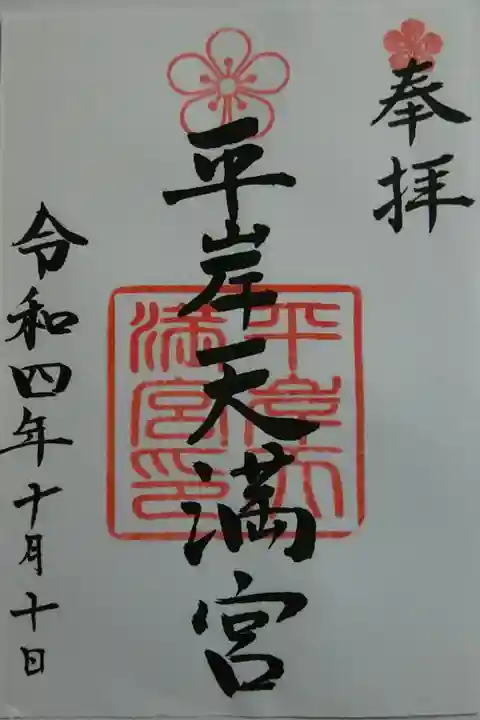 奉拝
平岸天満宮
平岸天
満宮印
令和四年十月十日